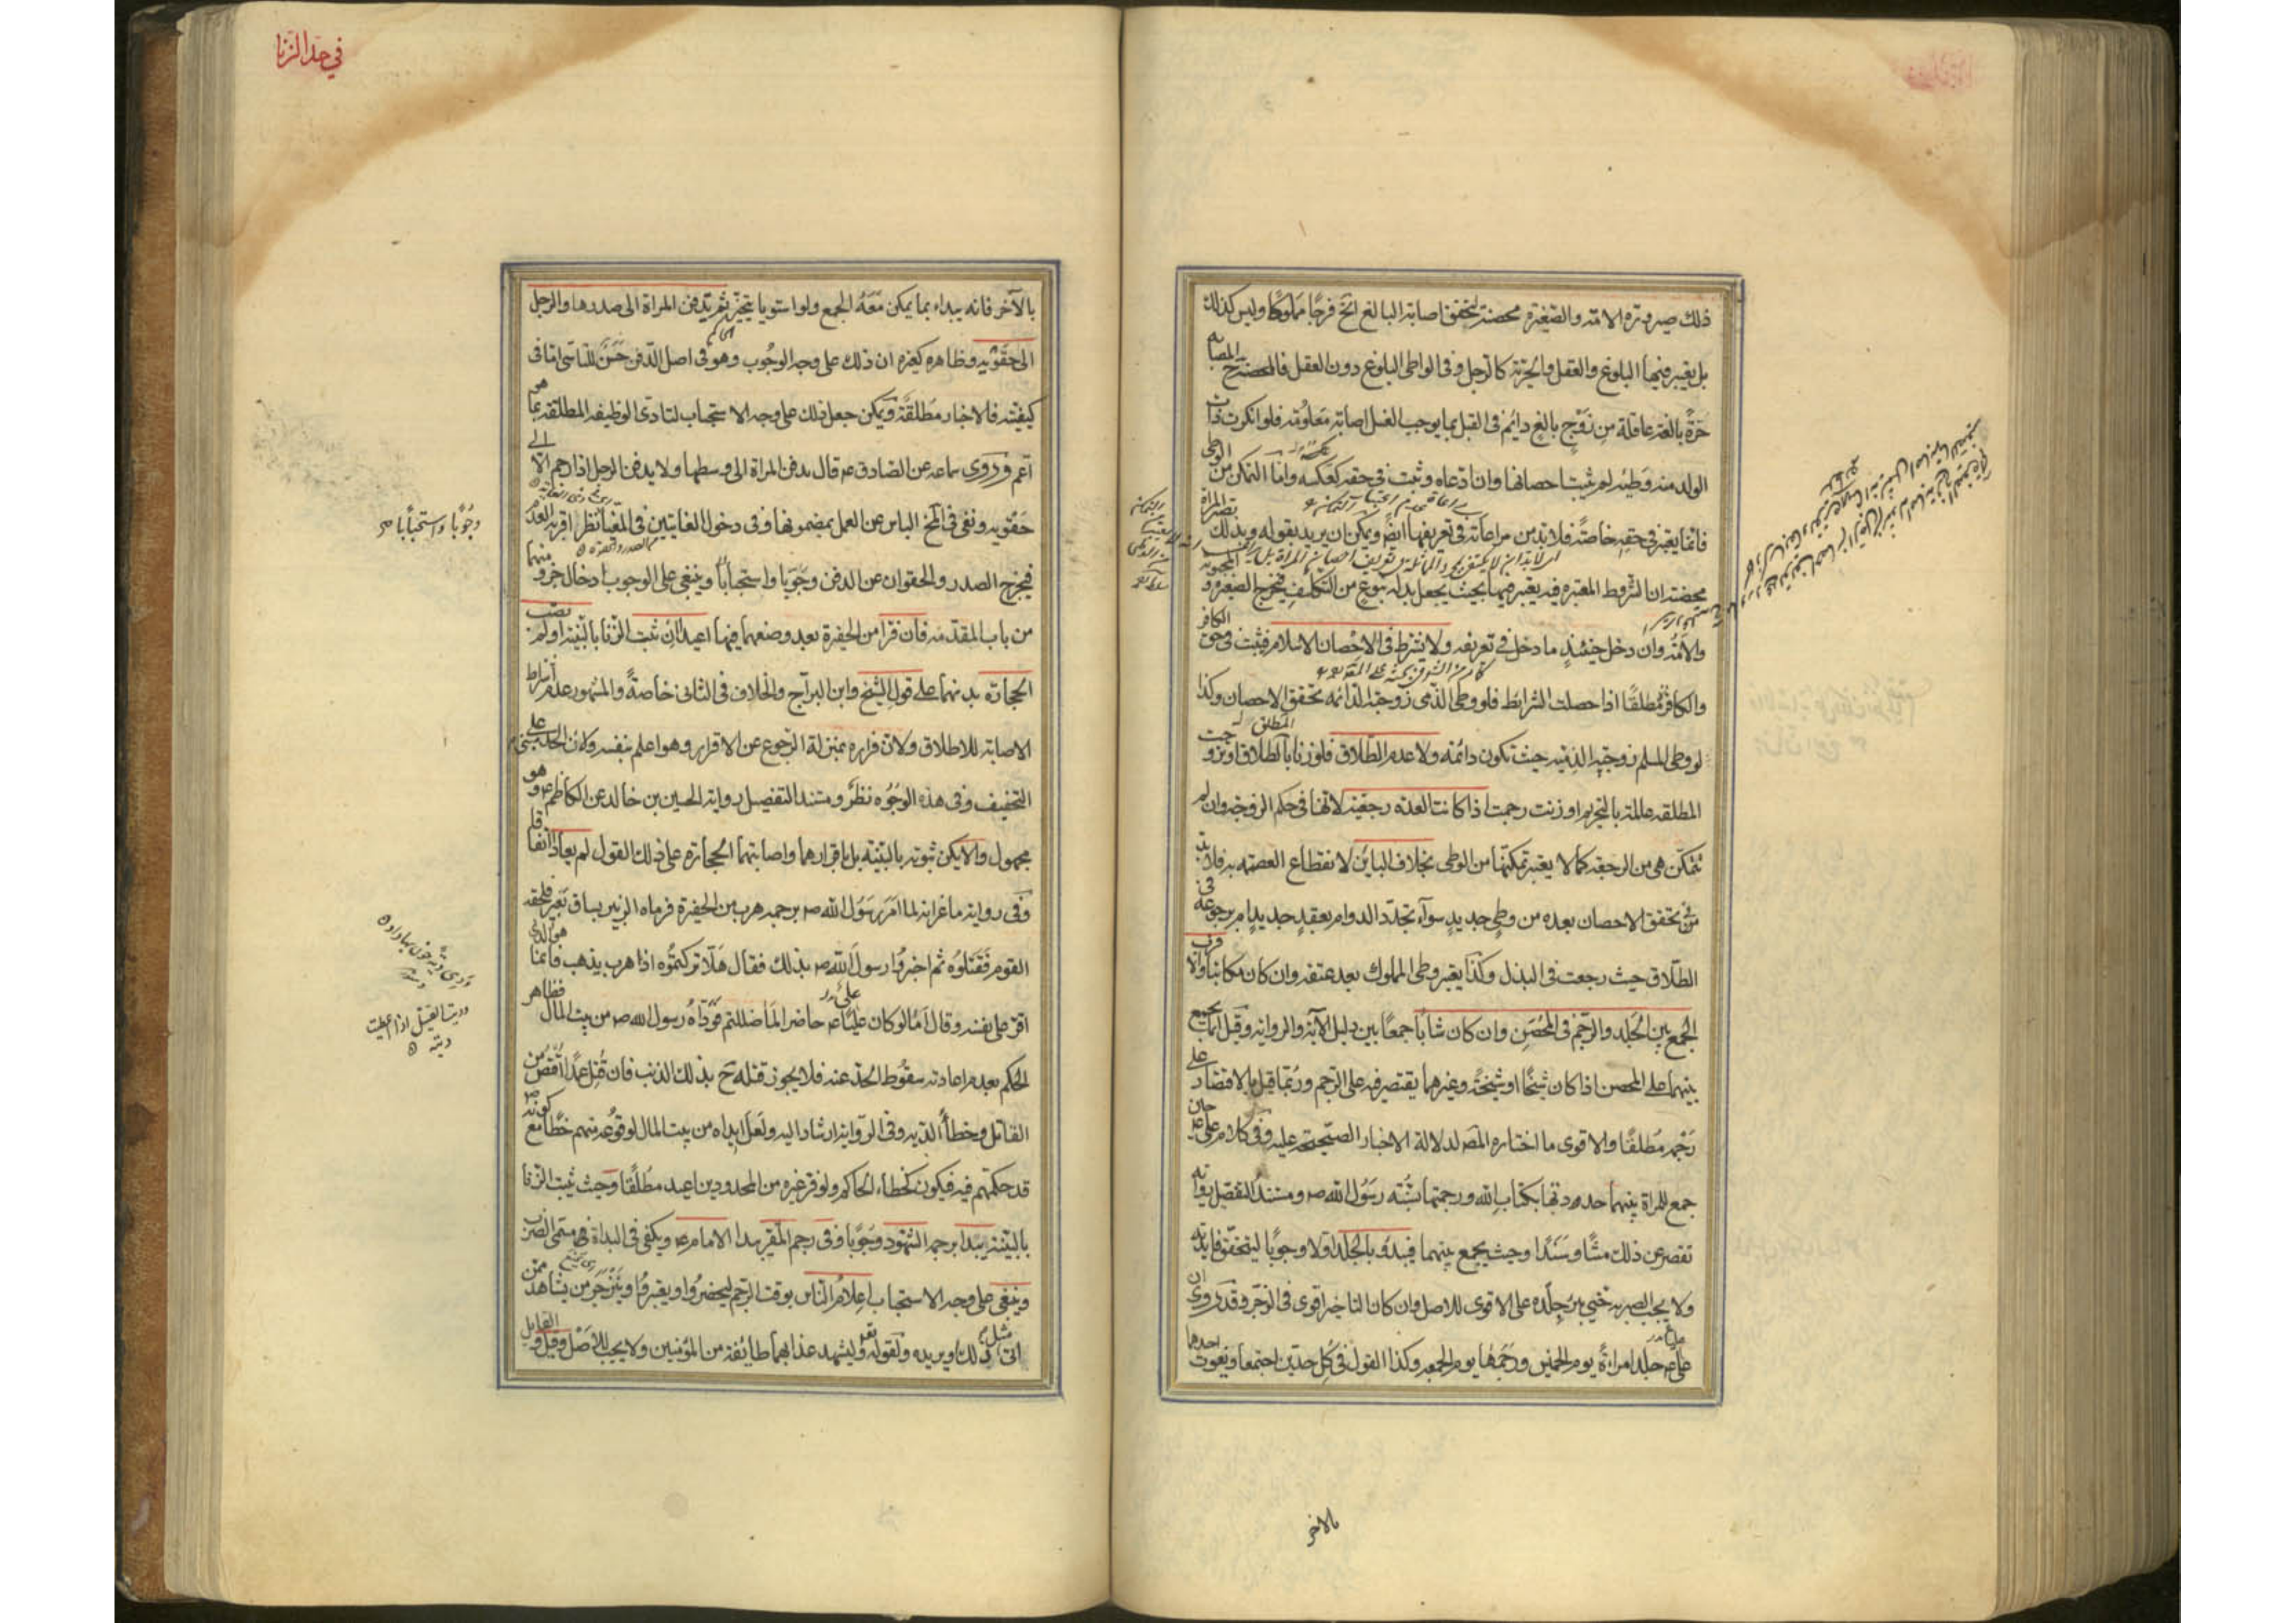 ذلك صيرورة الامة والصغيرة محصنة لتحقق اصابة البالغ الخ فرجا مملوكا وليس كذلك
بل يعتبر فيها البلوغ والعقل والحرية كالرجل وفى الواطى البلوغ دون العقل فالمحصنة ح المصابة
حرة بالغة عاقلة من زوج بالغ دائم فى القبل بما يوجب الغسل اصابة معلومة فلو انكرت ذات
الولد منه وطئه لم يثبت احصانها وان ادعاه وثبت فى حقه كعكسه واما التمكن من الوطى
فانما يعتبر فى حقه خاصة فلا بد من مراعاته فى تعريفها ايضا ويمكن ان يريد بقوله وبذلك تصير المراة
محصنة ان الشروط المعتبرة فيه يعتبر فيها بحيث يجعل بدله بنوع من التكلف فيخرج الصغيرة والمجنونة
والامة وان دخل حينئذ ما دخل فى تعريفه ولا يشترط فى الاحصان الاسلام فيثبت فى حق الكافر
والكافرة مطلقا اذا حصلت الشرايط فلو وطى الذمى زوجته الدائمة تحقق الاحصان وكذا
لو وطى المسلم زوجته الذمية حيث تكون دائمة ولا عدم الطلاق فلو زنا المطلق او تزوجت
المطلقة عالمة بالتحريم او زنت رجمت اذا كانت العدة رجعية لانها فى حكم الزوجة وان لم
تتمكن هى من الرجعة كما لا يعتبر تمكنها من الوطى بخلاف الباين لانقطاع العصمة به فلا بد
فى تحقق الاحصان بعده من وطى جديد سوآء تجدد الدوام بعقد جديد ام برجوعه فى
الطلاق حيث رجعت فى البذل وكذا يعتبر وطى المملوك بعد عتقه وان كان مكاتبا والاقرب
الجمع بين الجلد والرجم فى المحصن وان كان شابا جمعا بين دليل الآية والرواية وقيل انما يجمع
بينهما على المحصن اذا كان شيخا او شيخة وغيرهما يقتصر فيه على الرجم وربما قيل بالاقتصار على
رجمه مطلقا والاقوى ما اختاره المص لدلالة الاخبار الصحيحة عليه وفى كلام على ع حين
جمع للمراة بينهما حددتها بكتاب الله ورجمتها بسنة رسول الله ص ومستند التفصيل رواية
تقصر عن ذلك متنا وسندا وحيث يجمع بينهما فيبدؤ بالجلد اولا وجوبا ليتحقق فايدته
ولا يجب الصبر به حتى يبرء جلده على الاقوى للاصل وان كان التاخير اقوى فى الزجر وقد روى ان
عليا ع جلد امراة يوم الخميس ورجمها يوم الجمعة وكذا القول فى كل حدين اجتمعا ويفوت احدهما
بالآخر
فى حد الزنا
بالآخر فانه يبداء بما يمكن معه الجمع ولو استويا يتخير ثم تدفن المراة الى صدرها والرجل
الى حقويه وظاهره كغيره ان ذلك على وجه الوجوب وهو فى اصل الدفن حسن للتاسى اما فى
كيفيته فالاخبار مطلقة ويمكن جعل ذلك على وجه الاستحباب لتادى الوظيفة المطلقة بما هو
اعم وروى سماعة عن الصادق ع قال يدفن المراة الى وسطها ولا يدفن الرجل اذا رجم الا الى
حقويه ونفى فى المخ الباس عن العمل بمضمونها وفى دخول الغايتين فى المغيا نظر اقربه العدم
فيخرج الصدر والحقوان عن الدفن وجوبا واستحبابا وينبغى على الوجوب ادخال جزء منهما
من باب المقدمة فان فرا من الحفيرة بعد وضعهما فيها اعيدا ان ثبت الزنا بالبينة او لم تصب
الحجارة بدنهما على قول الشيخ وابن البراج والخلاف فى الثانى خاصة والمشهور عدم اشتراط
الاصابة للاطلاق ولان فراره بمنزلة الرجوع عن الاقرار وهو اعلم بنفسه ولان الحد مبنى على
التخفيف وفى هذه الوجوه نظر ومستند التفصيل رواية الحسين بن خالد عن الكاظم ع وهو
مجهول والا يكن ثبوته بالبينة بل باقرارهما واصابتهما الحجارة على ذلك القول لم يعادا اتفاقا
وفى رواية ماعز انه لما امر رسول الله ص برجمه هرب من الحفرة فرماه الزبير بساق بعير فلحقه
القوم فقتلوه ثم اخبروا رسول الله ص بذلك فقال هلا تركتموه اذا هرب يذهب فانما هو الذى
اقر على نفسه وقال اما لو كان على ع حاضرا لما ضللتم ووداه رسول الله ص من بيت المال فظاهر
الحكم بعدم اعادته سقوط الحد عنه فلا يجوز قتله ح بذلك الذنب فان قتل عمدا اقتص من
القاتل وخطأ الدية وفى الرواية ارشاد اليه ولعل ايداه من بيت المال لوقوعه منهم خطأ مع كونه ص
قد حكمهم فيه فيكون كخطاء الحاكم ولو فر غيره من المحدودين اعيد مطلقا وحيث ثبت الزنا
بالبينة يبدا برجمه الشهود وجوبا وفى رجم المقر يبدا الامام ع ويكفى فى البداة مسمى الضرب
وينبغى على وجه الاستحباب اعلام الناس بوقت الرجم ليحضروا ويعتبروا وينزجر من يشاهده ممن
اتى مثل ذلك او يريده ولقوله تع وليشهد عذابهما طائفة من المؤمنين ولا يجب للاصل وقيل والقايل
وجوبا واستحبابا ص
وديت القتيل اذا اعطيت
ديته